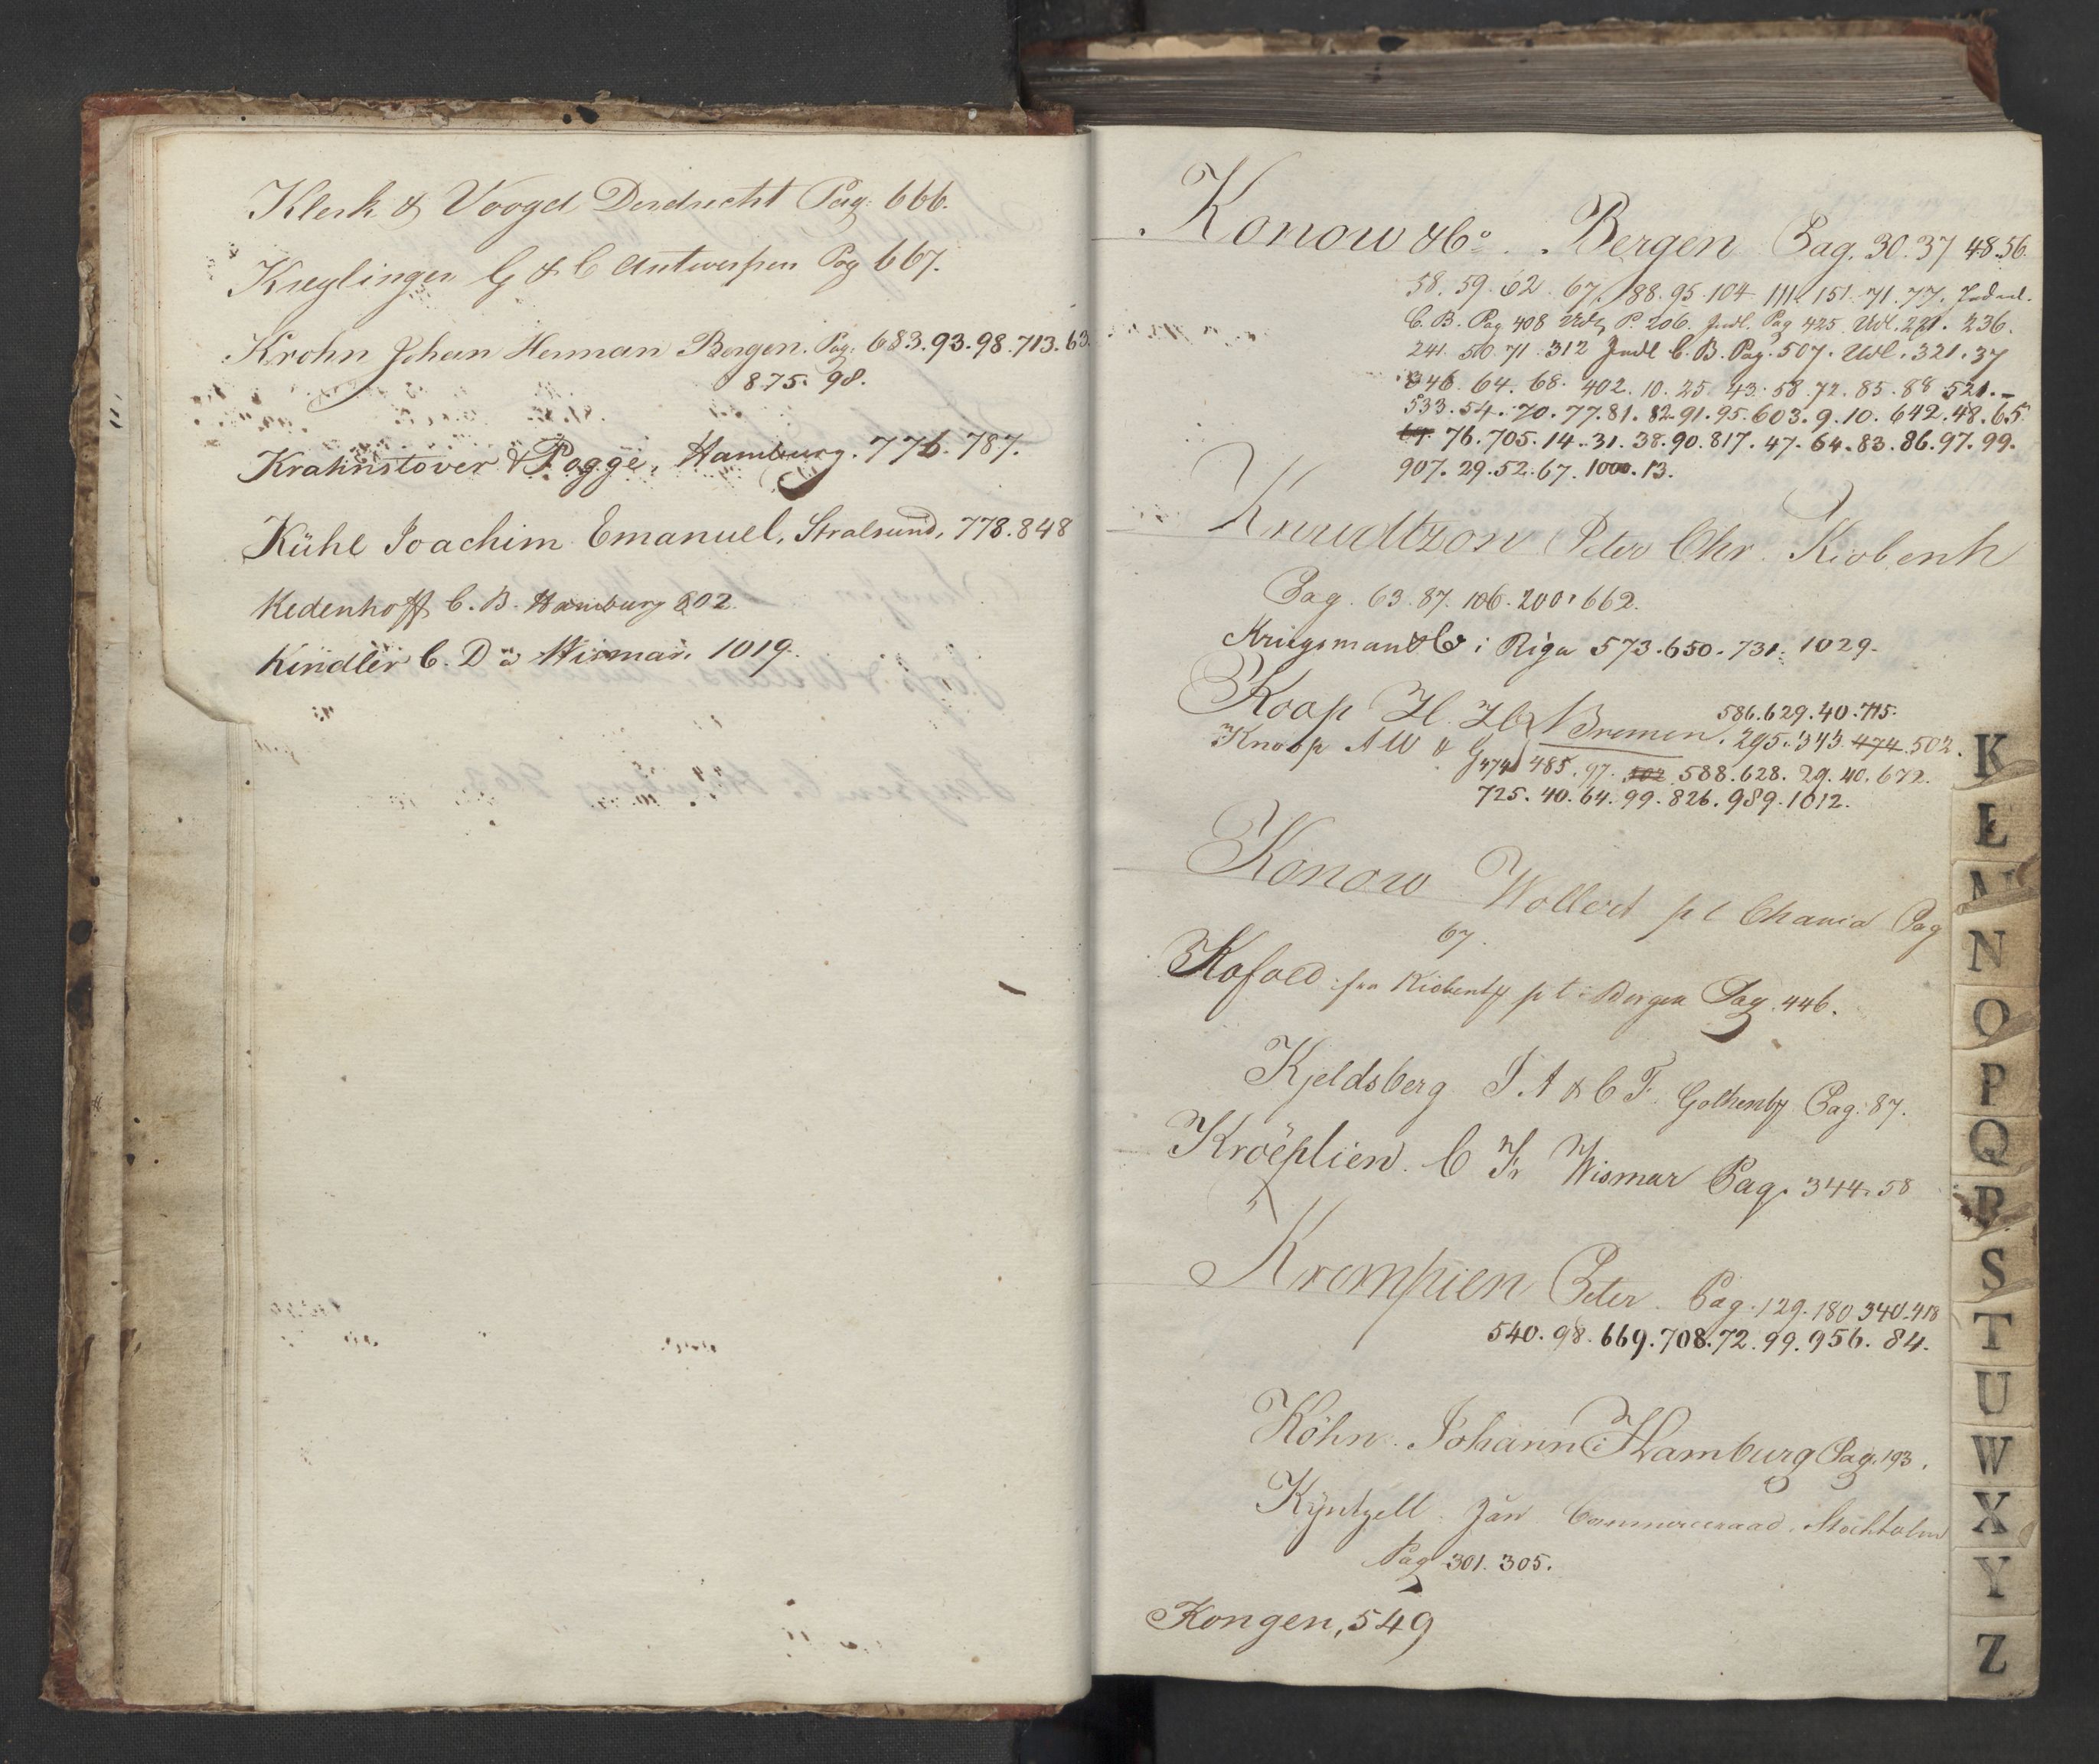 Klerk & Voogd Dordrecht Pag. 666.
Kreglinger G & C Antwerpen Pag 667.
Krohn Johan Herman Bergen. Pag. 683.93.98.713.63.
875. 98.
Krahnstover & Pogge, Hamburg. 776. 787.
Kühl Joachim Emanuel, Stralsund, 778.848
Kedenhoff C. B. Hamburg 802.
Kindler C. D. Wismar. 1019.
Konow & Co. Bergen Pag. 30. 37 48.56.
58. 59. 62. 67. 88. 95. 104 111. 151. 71. 77.
C. B. Pag 408 P. 206. Indl. Pag 425. Udl. 221. 236.
241. 50. 71. 312 Indl C. B. Pag. 507. Udl. 321. 37
346. 64. 68. 402. 10. 25 43. 58. 72. 85. 88 521.
533. 54. 70. 77. 81. 82. 91. 95. 603. 9. 10. 642. 48. 65
76. 705. 14. 31. 38. 90. 817. 47. 64. 83. 86. 97. 99.
907. 29. 52. 67. 1000. 13.
Knudtzon Peter Chr. Kiobenh
Pag. 63. 87. 106. 200. 662.
Kriegsman & Co i Riga 573. 650. 731. 1029.
586. 629. 40. 715.
Koop H. Bremen. 295. 343. 474. 502.
Knoop A W & G
474 485. 97. 502 588. 628. 29. 40. 672.
725. 40. 64. 99. 826. 989. 1012.
Konow Wollert p t Chania Pag
67.
Kofoed fra Kiobenh p t Bergen Pag. 446.
Kjeldsberg J. A & C F. Gothenbg Pag. 87.
Kroëplien. C Fr Wismar Pag. 344. 58
Krempien Peter. Pag. 129. 180 340. 418
540. 98. 669. 708. 72. 99. 956. 84.
Köhn. Johann i Hamburg Pag. 193.
Kÿntzell Jan Commerceraad. Stockholm
Pag 301. 305.
Kongen, 549
K
L
M
N
O
P
Q
R
S
T
U
W
X
Y
Z